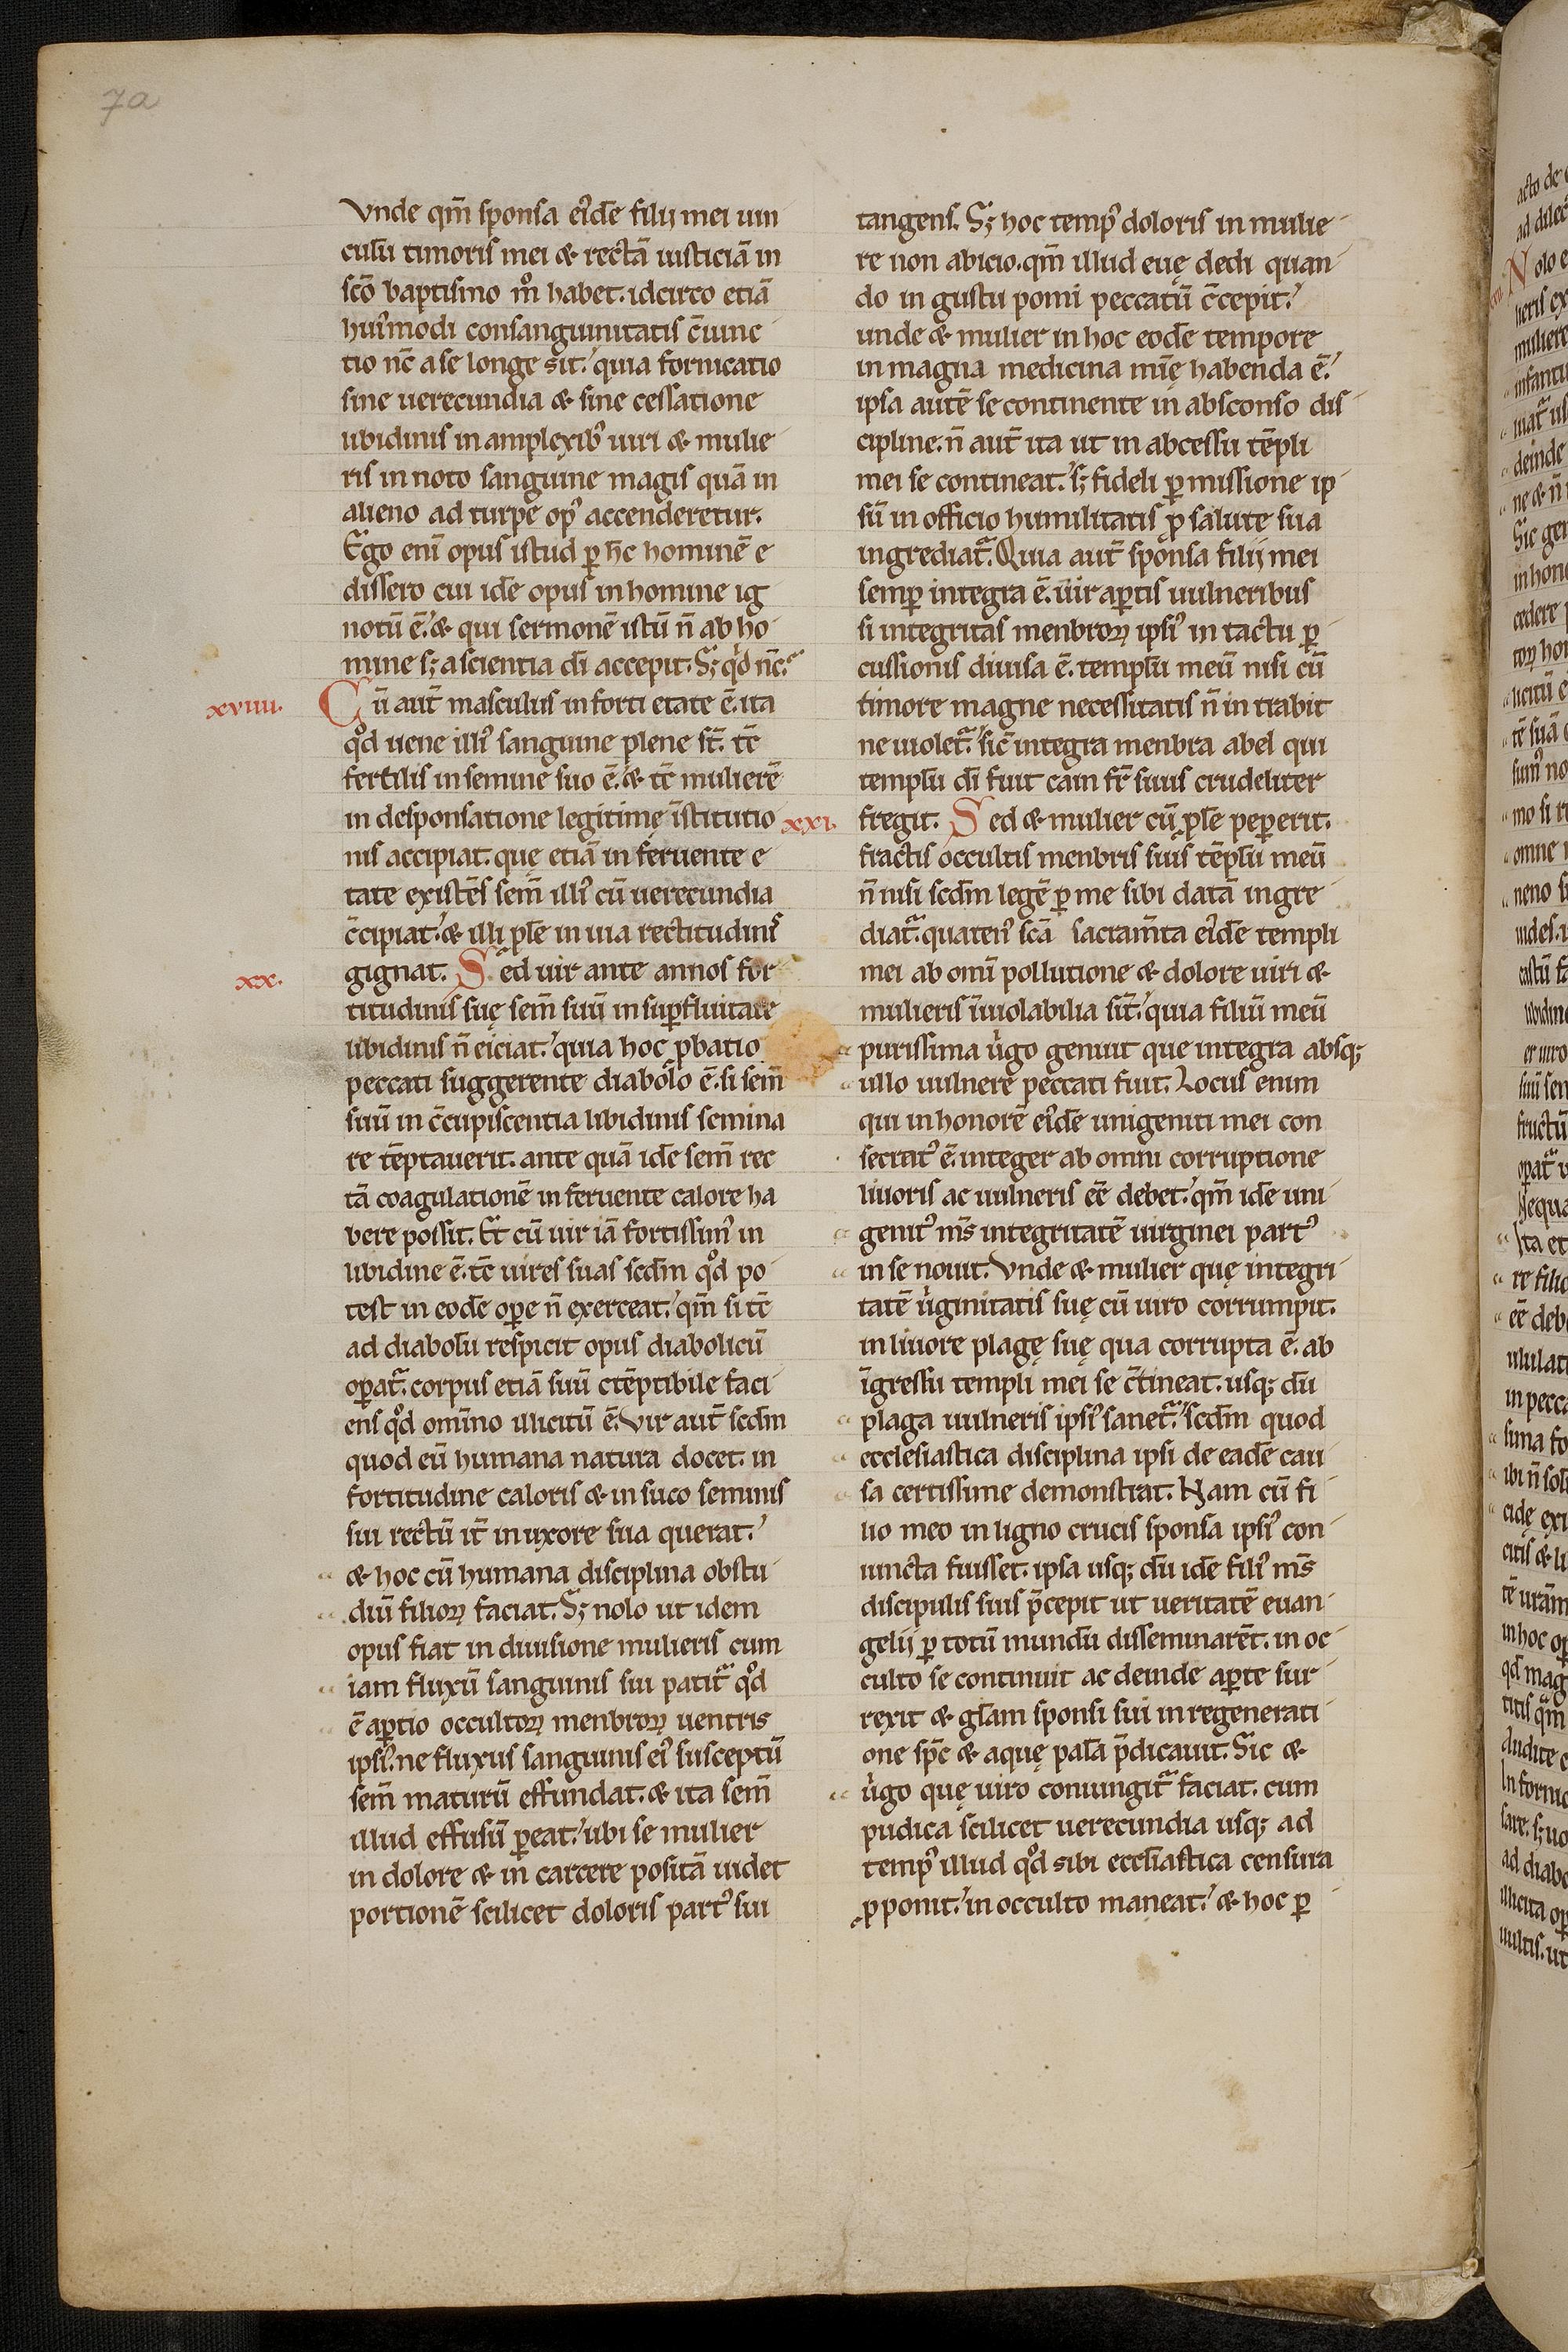 7a
Vnde qm̄ sponsa eiꝰdē filij mei uin
culū timoris mei & rectā iusticiā in
sc̄o baptismo m̊ habet. idcirco etiā
huiꝰmodi consanguinitatis c̄iunc
tio nc̄ a se longe sit. quia fornicatio
sine uerecundia & sine cessatione
libidinis in amplexibꝰ uiri & mulie
ris in noto sanguine magis quā in
alieno ad turpe opꝰ accenderetur.
Ego eni̅ opus istud ꝑ hc̄ hominē e
dissero cui idē opus in homine ig
notū ē. & qui sermonē istū n̄ ab ho
mine sꝫ a scientia di̅ accepit. Sꝫ qͥd nc̄.
xviiii.
Cū aut̄ masculus in forti etate ē. ita
qͦd uene illiꝰ sanguine plene st̄. tc̄
fertilis in semine suo ē. & tc̄ mulierē
in desponsatione legitimę īstitutio
nis accipiat. quę etiā in feruente e
tate existēs sem̄ illiꝰ cū uerecundia
c̄cipiat. & illi ꝓlē in uia rectitudinis
xx.
gignat. Sed uir ante annos for
titudinis suę sem̄ suū in suꝑfluitate
libidinis n̄ eiciat. quia hoc ꝓbatio
peccati suggerente diabolo ē. si sem̄
suū in c̄cupiscentia libidinis semina
re tēptauerit. ante quā idē sem̄ rec
tā coagulationē in feruente calore ha
bere possit. Et cū uir iā fortissimꝰ in
libidine ē. tc̄ uires suas scdm̄ qͦd po
test in eodē oꝑe n̄ exerceat. qm̄ si tc̄
ad diabolū respicit opus diabolicū
oꝑatᷓ. corpus etiā suū ctēptibile faci
ens qͦd omīno illicitū ē. Vir aut̄ scdm̄
quod eū humana natura docet. in
fortitudine caloris & in suco seminis
sui rectū it̄ in uxore sua querat.
& hoc cū humana disciplina obstu
diū filioꝝ faciat. Sꝫ nolo ut idem
opus fiat in diuisione mulieris cum
iam fluxū sanguinis sui patitᷓ qͦd
ē aꝑtio occultoꝝ menbroꝝ uentris
ipsiꝰ. ne fluxus sanguinis eiꝰ susceptū
sem̄ maturū effundat. & ita sem̄
illud effusū ꝑeat. ubi se mulier
in dolore & in carcere positā uidet
portionē scilicet doloris partꝰ sui
tangens. Sꝫ hoc tempꝰ doloris in mulie
re non abicio. qm̄ illud euę dedi quan
do in gustu pomi peccatū c̄cepit.
unde & mulier in hoc eodē tempore
in magna medicina mi̅ę habenda ē.
ipsa autē se continente in absconso dis
cipline. n̄ aut̄ ita ut in abcessu tēpli
mei se contineat. sꝫ fideli ꝑmissione ip
sū in officio humilitatis ꝓ salute sua
ingrediatᷓ. Quia aut̄ sponsa filij mei
semꝑ integra ē. uir aꝑtis uulneribus
si integritas menbroꝝ ipsiꝰ in tactu ꝑ
cussionis diuisa ē. templū meū nisi cū
timore magne necessitatis n̄ in trabit
ne uioletᷓ. sic̄ integra menbra abel qui
templū di̅ fuit cain fr̄ suus crudeliter
xxi.
fregit. Sed & mulier cū ꝓlē peꝑerit.
fractis occultis menbris suis tēplū meū
n̄ nisi scdm̄ legē ꝑ me sibi datā ingre
diatᷓ. quatenꝰ sc̄a sacram̄ta eiꝰdē templi
mei ab omi̅ pollutione & dolore uiri &
mulieris īuiolabilia sīt. quia filiū meū
purissima uͥgo genuit que integra absqꝫ
ullo uulnere peccati fuit. Locus enim
qui in honorē eiꝰdē unigeniti mei con
secratꝰ ē. integer ab omni corruptione
liuoris ac uulneris eē debet. qm̄ idē uni
genitꝰ ms̄ integritatē uirginei partꝰ
in se nouit. Vnde & mulier quę integri
tatē uͥginitatis suę cū uiro corrumpit.
in liuore plagę suę qua corrupta ē. ab
īgressu templi mei se c̄tineat. usqꝫ dū
plaga uulneris ipsiꝰ sanetᷓ. scdm̄ quod
ecclesiastica disciplina ipsi de eadē cau
sa certissime demonstrat. Nam cū fi
lio meo in ligno crucis sponsa ipsiꝰ con
iuncta fuisset. ipsa usqꝫ dū idē filiꝰ ms̄
discipulis suis p̄cepit ut ueritatē euan
gelij ꝑ totū mundū disseminarēt. in oc
culto se continuit ac deinde aꝑte sur
rexit & glam̄ sponsi sui in regenerati
one spc̄ & aquę palā p̄dicauit. Sic &
uͥgo quę uiro coniungitᷓ faciat. cum
pudica scilicet uerecundia usqꝫ ad
tempꝰ illud qͦd sibi eccl̄iastica censura
ꝓponit. in occulto maneat. & hoc ꝑ